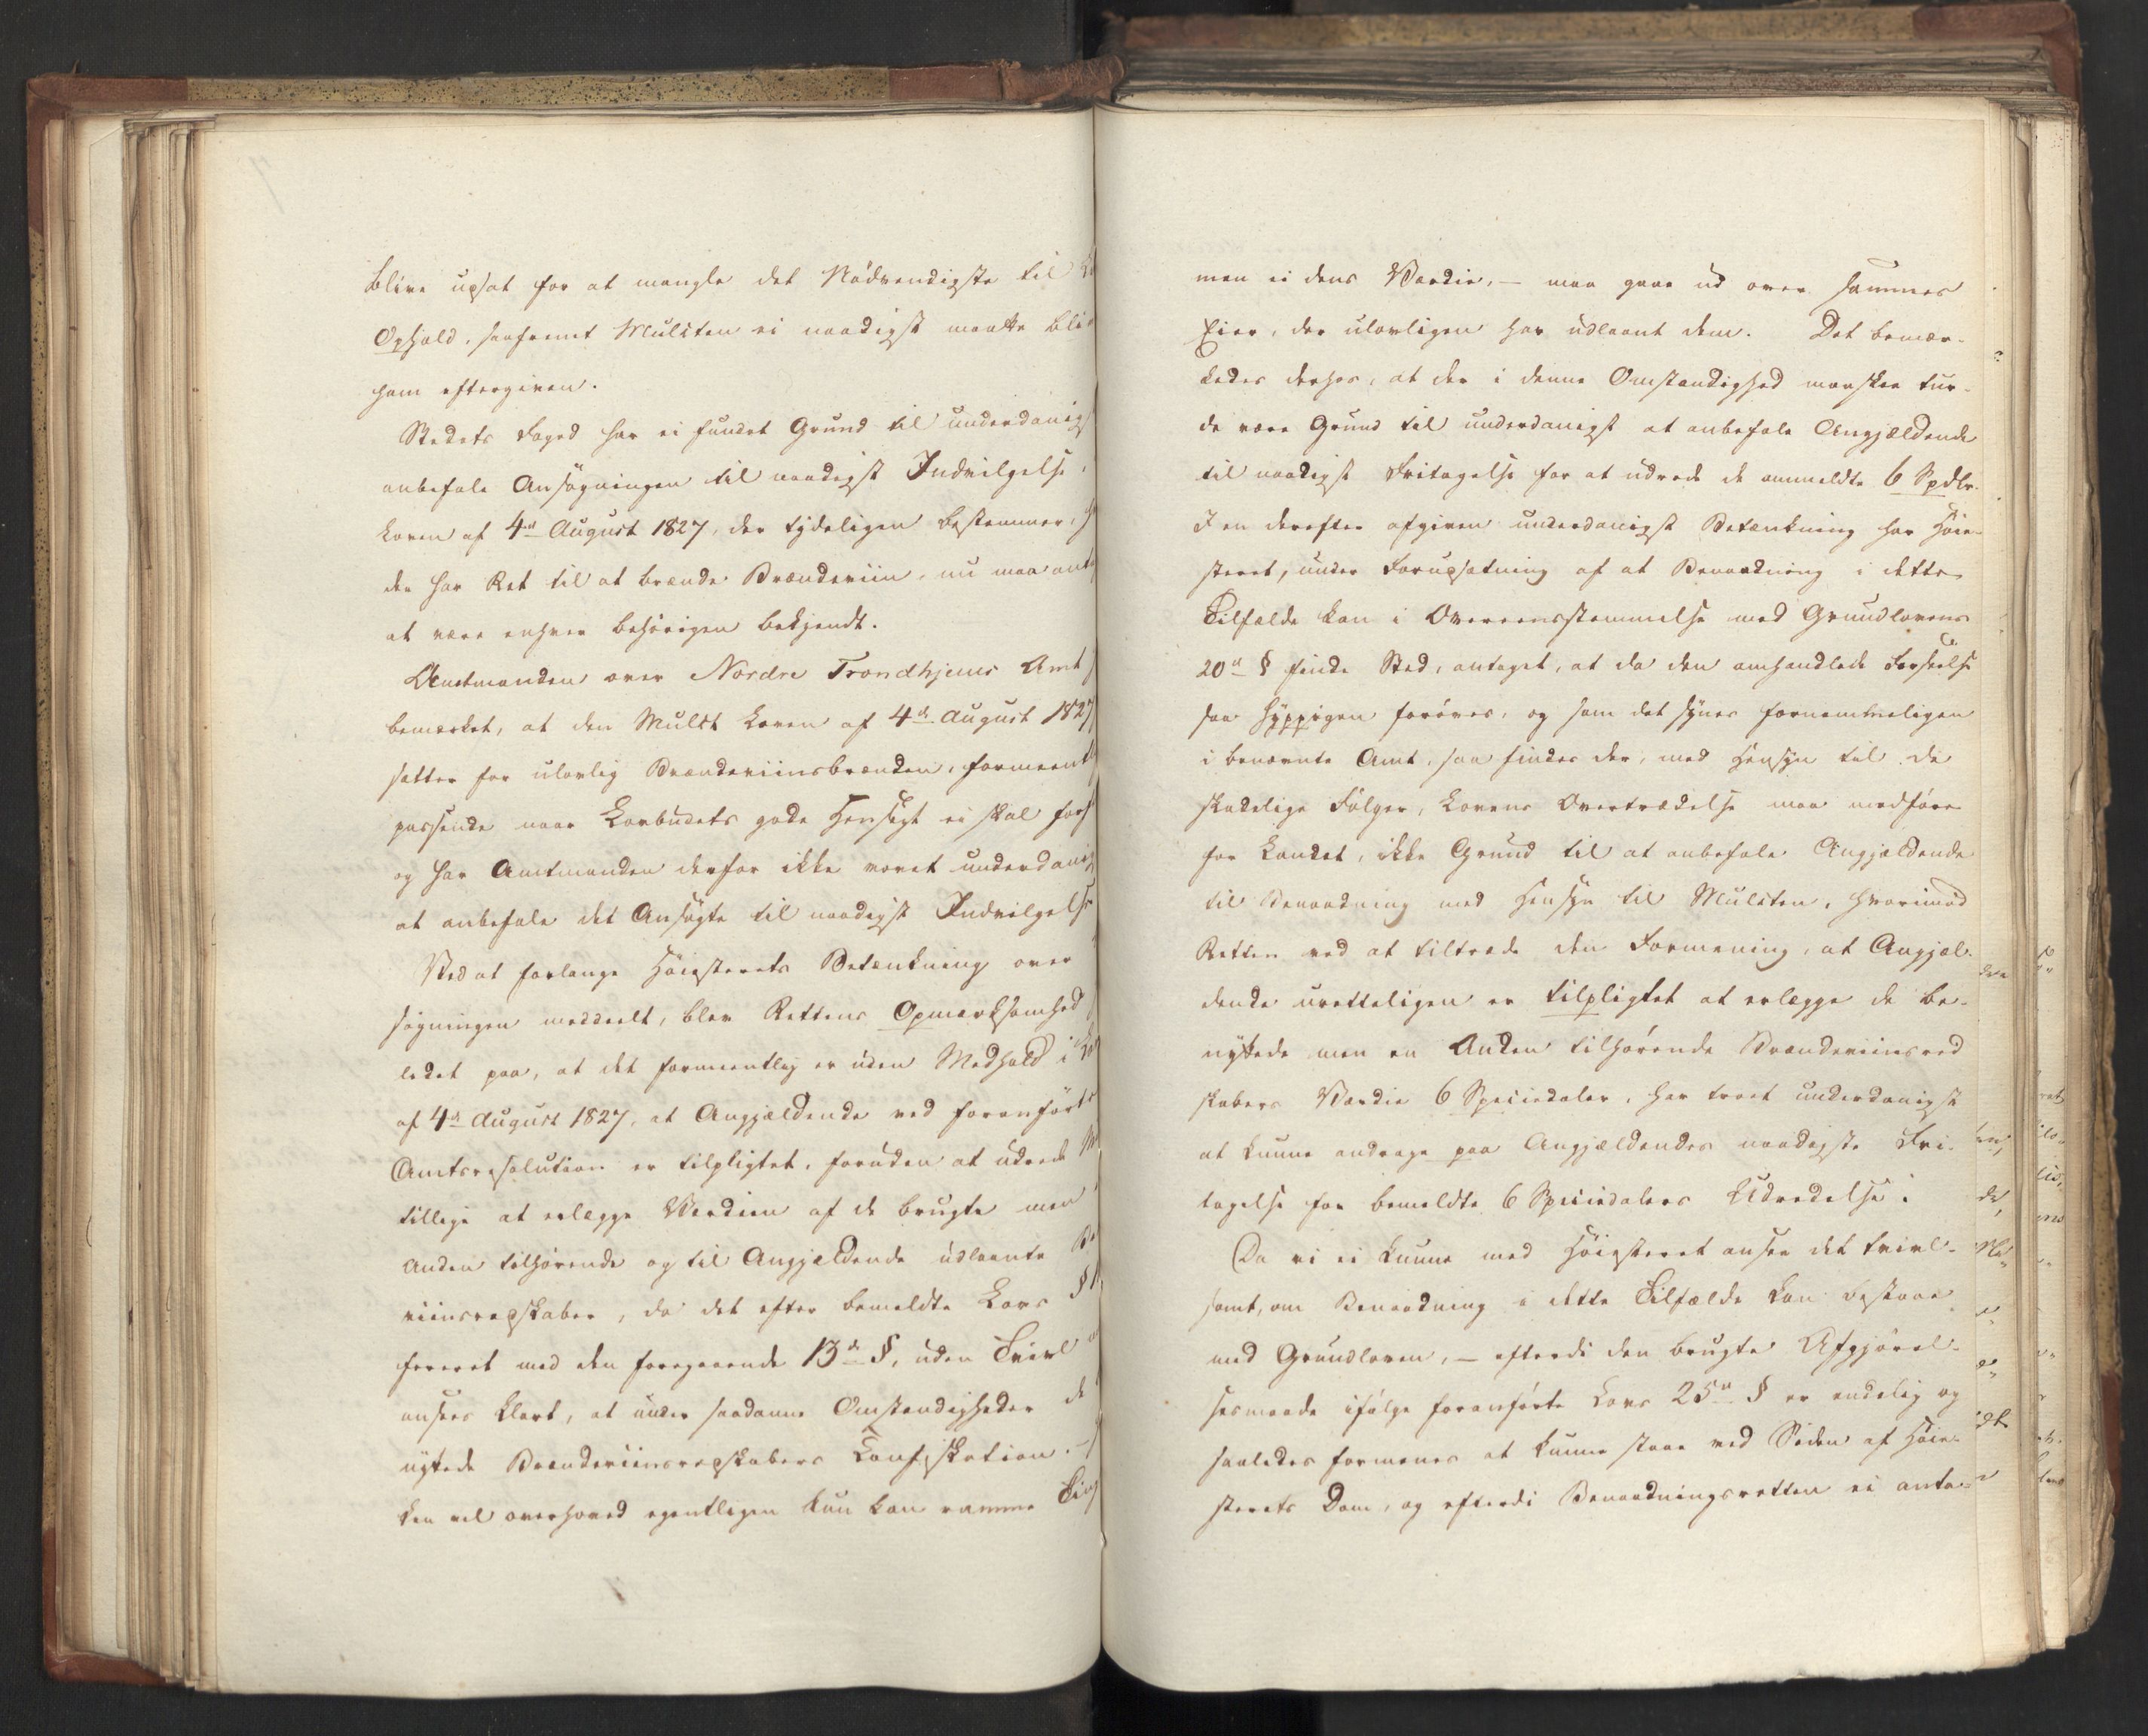 blive udsat for at mangle det Nødvendigste til
Ophold, saafremt Mulkten ei naadigst maatte bli
ham eftergiven.
Stedets Foged har ei fundet Grund til underdanigst
anbefale Ansøgningen til naadigst Indvilgelse,
Loven af 4de August 1827, der tydeligen bestemmer,
der har Ret til at brænde Brændeviin, nu maa ant
at være enhver behørigen bekjendt.
Amtmanden over Nordre Trondhjems Amt
bemærket, at den Mulkt Loven af 4de August 1827
sætter for ulovlig Brændeviinsbrænden, formeentl
passende naar Lovbudets gode Hensigt ei skal fors
og har Amtmanden derfor ikke voret underdanig
at anbefale det Ansøgte til naadigst Indvilgelse
Ved at forlange Høiesterets Betænkning over
søgningen meddeelt, blev Rettens Opmærksomhed
ledet paa, at det formeentlig er uden Medhold i
af 4de August 1827, at Angjældende ved foranførte
Amtsresolution er tilpligtet, foruden at udrede
tillige at erlægge Værdien af de brugte men
Anden tilhørende og til Angjældende udlaante
viinsredskaber, da det efter bemeldte Lovs §
foreret med den foregaaende 13de §, uden Tvivl
ansees klart, at under saadanne Omstændigheder de
nyttede Brændeviinsredskabers Confiskation. –
ken vel overhoved egentligen kun kan ramme
men ei dens Værdie, – maa gaae ud over sammes
Eier, der ulovligen har udlaant dem. Det bemær-
kedes derhos, at der i denne Omstændighed maaskee tur-
de være Grund til underdanigst at anbefale Angjældende
til naadigst Fritagelse for at udrede de ommeldte 6 Spdlr.
I en derefter afgiven underdanigst Betænkning har Høie-
steret, under Forudsætning af at Benaadning i dette
Tilfælde kan i Overeensstemmelse med Grundlovens
20de § finde Sted, antaget, at da den omhandlede Forseelse
saa hyppigen forøves, og som det synes fornemmeligen
i benævnte Amt, saa findes der, med Hensyn til de
skadelige Følger, Lovens Overtrædelse maa medføre
for Landet, ikke Grund til at anbefale Angjældende
til Benaadning med Hensyn til Mulkten, hvorimod
Retten ved at tiltræde den Formening, at Angjæl-
dende uretteligen er tilpligtet at erlægge de be-
nyttede men en Anden tilhørende Brændeviinsred
skabers Værdie 6 Speciedaler, har troet underdanigst
at kunne andrage paa Angjældendes naadigste Fri-
tagelse for bemeldte 6 Speciedalers Udredelse.
Da vi ei kunne med Høiesteret ansee det tvivl-
somt, om Benaadning i dette Tilfælde kan bestaae
med Grundloven, – efterdi den brugte Afgjørel-
sesmaade ifølge foranførte Lovs 25de § er endelig og
saaledes formenes at kunne staae ved Siden af Høie-
sterets Dom, og efterdi Benaadningsretten ei anta-